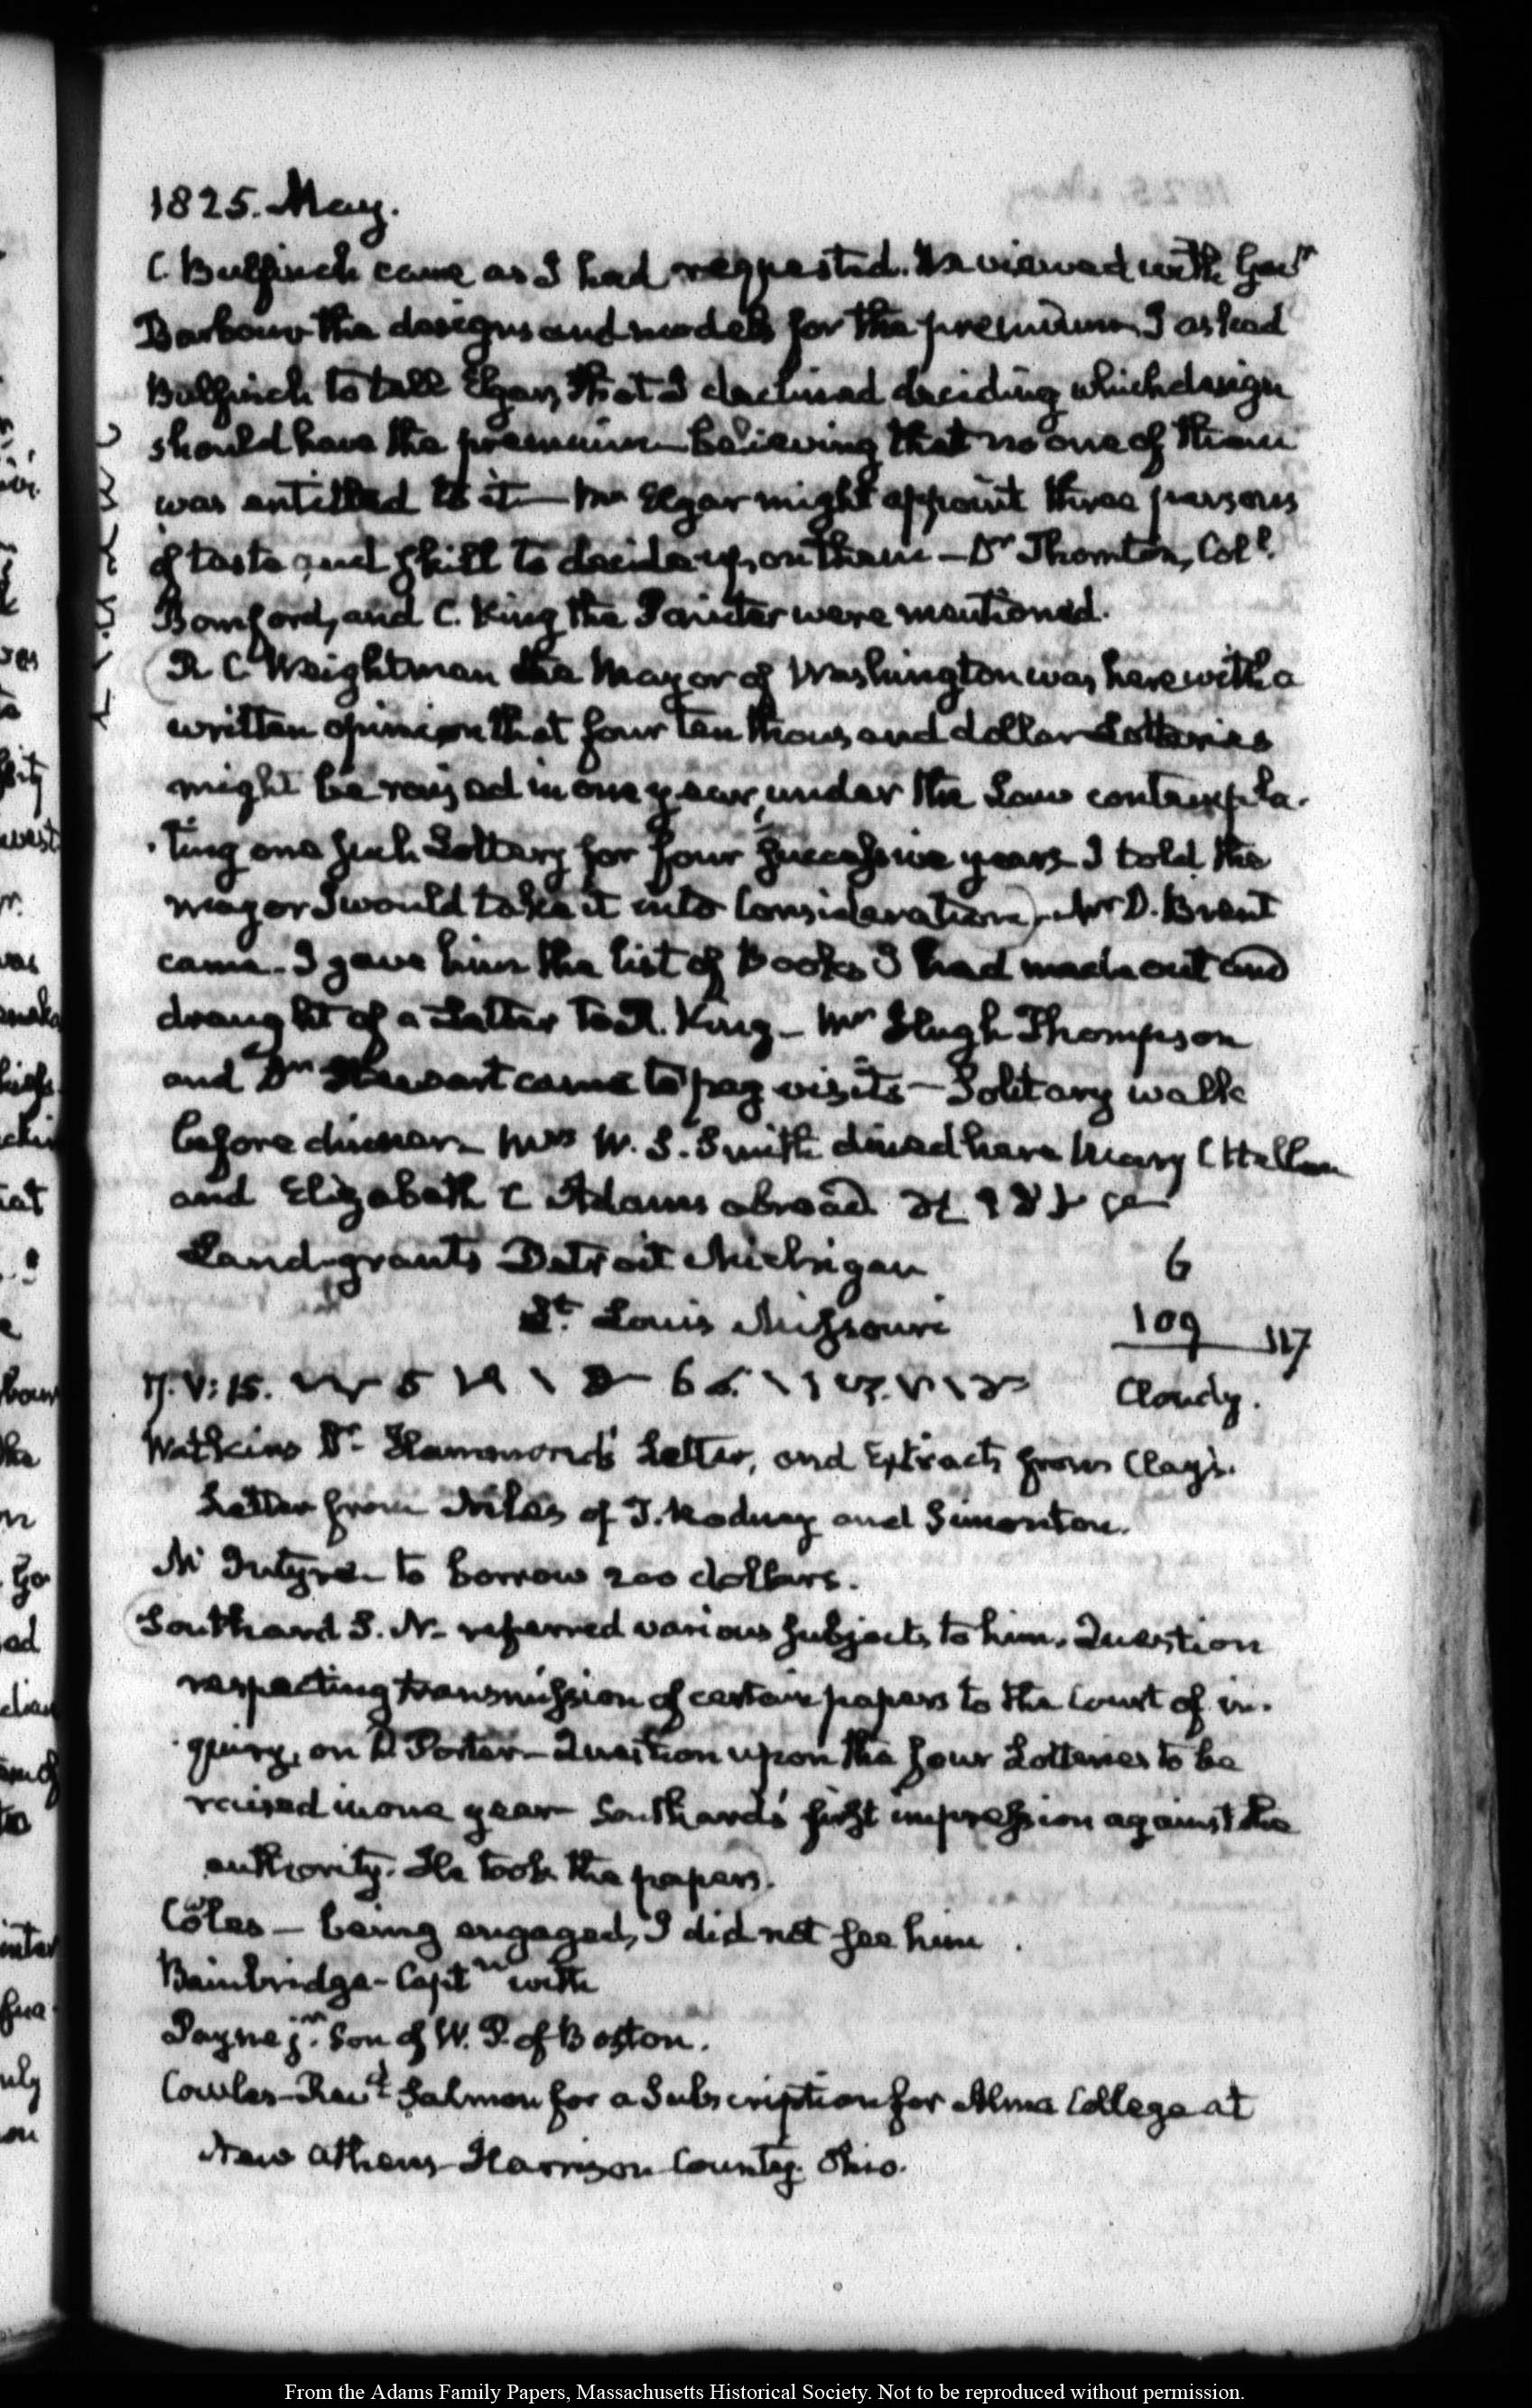 1825. May.
C Bulfinch came as I had requested. Reviewed with Govr
Barbour the designs and models for the premium, I asked
Bulfinch to tell Elgar, that I declined deciding which design
should have the premium believing that no one of them
was entitled to it — Mr Elgar might appoint three persons
of taste and skill to decide upon them — Dr Thornton, Coll.
Bomford, and C. King the Painter were mentioned.
R C Weightman the Mayor of Washington was here with a
written opinion that four ten thousand dollar Lotteries
might be raised in one year, under the Law contempla-
-ting one such Lottery for four successive years I told the
mayor I would take it into Consideration) Mr D. Brent
came. I gave him the list of Books I had made out and
draught of a Letter to R. King — Mr Hugh Thompson
and Dr Stewart came to pay visits — Solitary walk
before dinner. Mrs W. S. Smith dined here Mary C Hellen
and Elizabeth C Adams abroad
Land-grants Detroit Michigan 6
St. Louis Missouri 109 117
17. V: 15. Cloudy.
Watkins Dr. Hammond's Letter, and Extracts from Clay's.
Letter from Niles of T. Rodney and Simonton.
Mc Intyre — to borrow 200 dollars.
(Southard S. N. — referred various subjects to him. Question
respecting transmission of certain papers to the Court of in-
quiry, on D Porter — Question upon the four Lotteries to be
raised in one year — Southard's first impression against the
authority. He took the papers).
Coles — being engaged, I did not see him.
Bainbridge — Captn with
Payne jr. Son of W. P. of Boston.
Cowles — Revd Salmon for a Subscription for Alma College at
New Athens Harrison County Ohio.
From the Adams Family Papers, Massachusetts Historical Society. Not to be reproduced without permission.